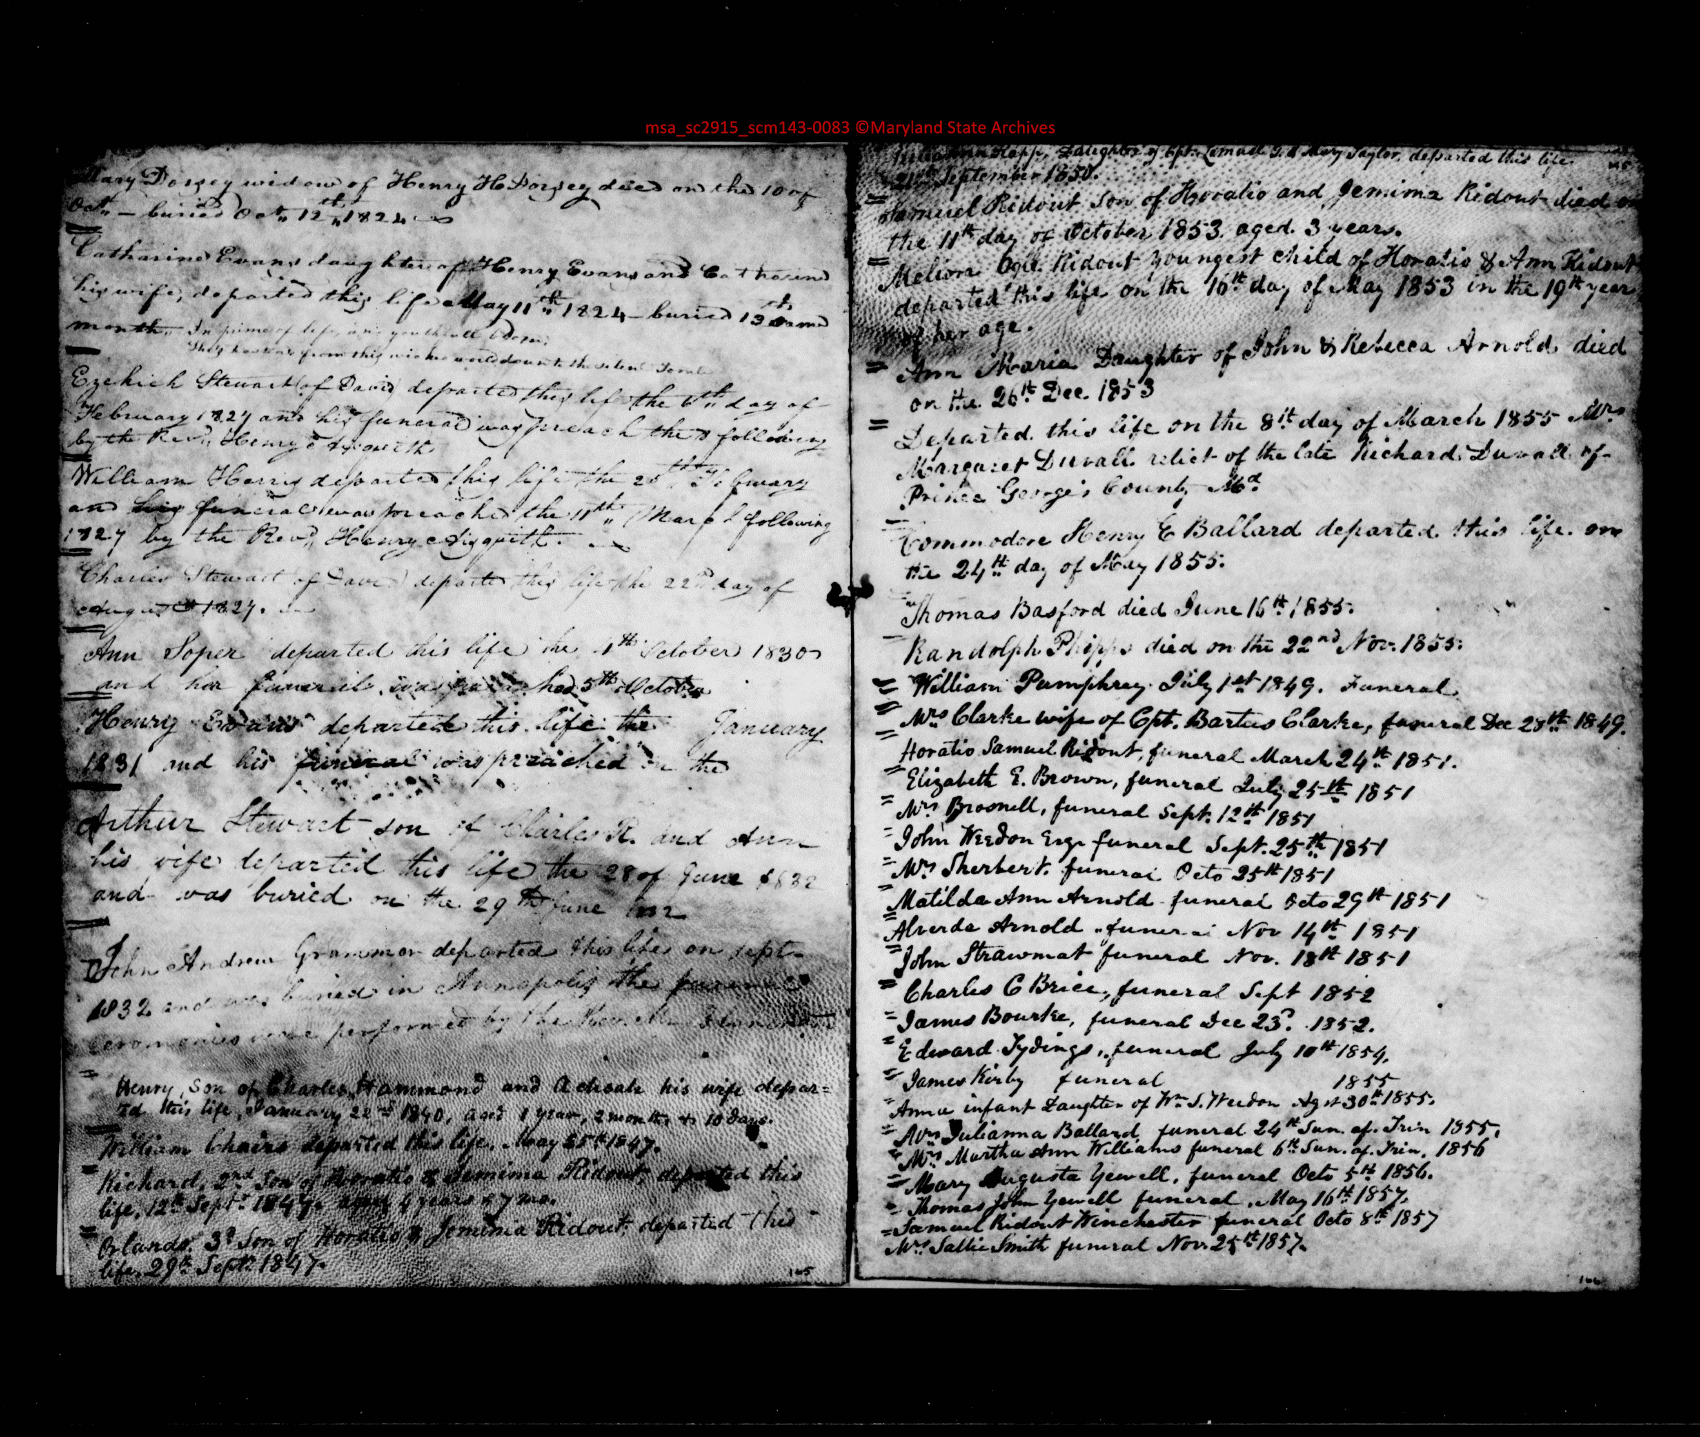 msa_sc2915_scm143-0083 ©Maryland State Archives
Mary Dorsey widow of Henry H Dorsey died on the 10 of
Oct. – buried Oct. 12th 1824
Catharine Evans daughter of Henry Evans and Catharine
his wife, departed this life May 11th 1824 – buried 13th same
month. In prime of life, and youthfull bloom,
from this wicked world down to the silent Tomb
Ezekieh Stewart of David departed this life the 6th day of
February 1827 and his funeral was preach the following
by the Revd. Henry
William Harris departed this life the 25th February
and his funeral was preached the 11th March following
1827 by the Revd. Henry
Charles Stewart of David departed this life the 22nd day of
August 1827.
Ann Soper departed this life the 4th October 1830
and her funeral was preached 5th October
Henry Evans departed this life the January
1831 and his funeral was preached on the
Arthur Stewart son of Charles R. and Ann
his wife departed this life the 28 of June 1832
and was buried on the 29th June 1832
John Andrew Grammer departed this life on sept
1832 and was buried in Annapolis the funeral
ceremonies were performed by the
Henry, son of Charles Hammond and Achsah his wife depar=
ted this life, January 22nd 1840, aged 1 year, 2 months & 10 days.
William Chairs departed this life, May 25th 1847.
Richard, 2nd Son of Horatio & Jemima Ridout, departed this
life, 12th Sept. 1847. aged 4 years & 7 mo.
Orlando, 3d Son of Horatio & Jemima Ridout, departed this
life, 29th Sept. 1847.
165
Daughter of Cpt. Lemuel G. & Mary Taylor, departed this life
21st September 1850.
Samuel Ridout son of Horatio and Jemima Ridout died on
the 11th day of October 1853. aged. 3 years.
Meliora Ogle Ridout youngest child of Horatio & Ann Ridout
departed this life on the 16th day of May 1853 in the 19th year
of her age.
Ann Maria Daughter of John & Rebecca Arnold died
on the 26th Dec. 1853
Departed this life on the 8th day of March 1855 Mrs
Margaret Duvall relict of the late Richard Duvall of
Prince George's County Md
Commodore Henry E Ballard departed this life on
the 24th day of May 1855.
Thomas Basford died June 16th 1855.
Randolph Phipps died on the 22nd Nov. 1855.
William Pumphrey July 1st 1849. Funeral
Mrs Clarke wife of Cpt. Bartus Clarke, funeral Dec 28th 1849.
Horatio Samuel Ridout, funeral March 24th 1851.
Elizabeth E. Brown, funeral July 25th 1851
Mrs Brosnell, funeral Sept. 12th 1851
John Weedon Esqr funeral Sept. 25th 1851
Mrs Sherbert. funeral Octo 25th 1851
Matilda Ann Arnold funeral Octo 29th 1851
Alverda Arnold funeral Nov 14th 1851
John Strawmat funeral Nov. 18th 1851
Charles C Brice, funeral Sept 1852
James Bourke, funeral Dec 23d. 1852.
Edward Tydings, funeral July 10th 1854.
James Kirby funeral 1855
Anna infant Daughter of Wm. J. Weedon Agst 30th 1855.
Mrs Julianna Ballard, funeral 24th Sun. af. Trin 1855.
Mrs Martha Ann Williams funeral 6th Sun. af. Trin. 1856
Mary Augusta Yewell, funeral Octo 5th 1856.
Thomas John Yewell funeral, May 16th 1857.
Samuel Ridout Winchester funeral Octo 8th 1857
Mrs Sallie Smith funeral Nov. 25th 1857.
166